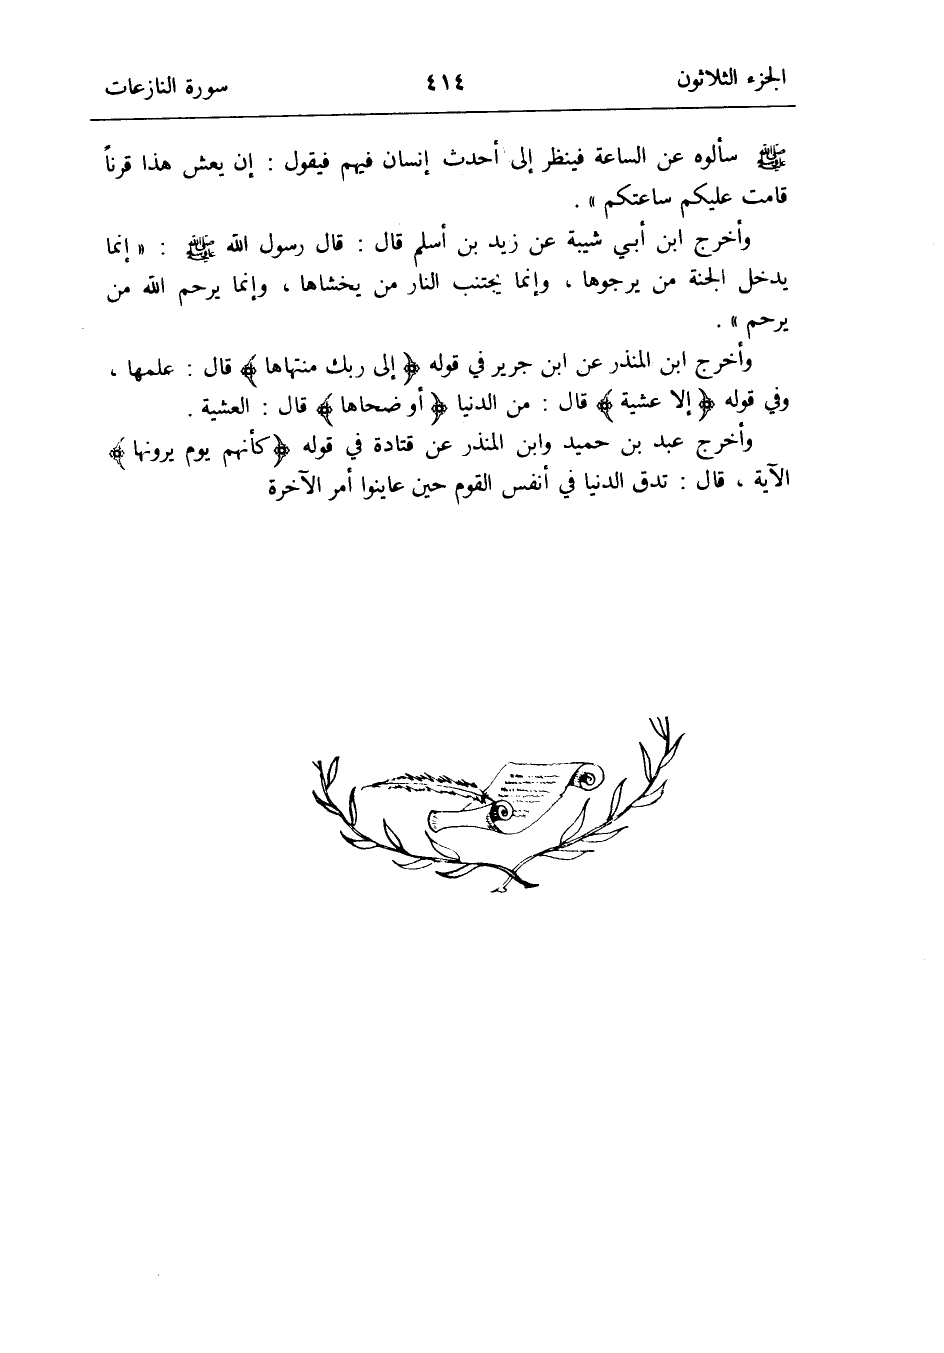 الجزء الثلاثون ٤١٤ سورة النازعات
ﷺ سألوه عن الساعة فينظر إلى أحدث إنسان فيهم فيقول : إن يعش هذا قرناً
قامت عليكم ساعتكم » .
وأخرج ابن أبي شيبة عن زيد بن أسلم قال : قال رسول الله ﷺ : « إنما
يدخل الجنة من يرجوها ، وإنما يجتنب النار من يخشاها ، وإنما يرحم الله من
يرحم » .
وأخرج ابن المنذر عن ابن جرير في قوله ﴿ إلى ربك منتهاها ﴾ قال : علمها ،
وفي قوله ﴿ إلا عشية ﴾ قال : من الدنيا ﴿ أو ضحاها ﴾ قال : العشية .
وأخرج عبد بن حميد وابن المنذر عن قتادة في قوله ﴿ كأنهم يوم يرونها ﴾
الآية ، قال : تدق الدنيا في أنفس القوم حين عاينوا أمر الآخرة